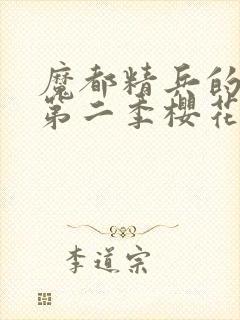 魔都精兵的
第二季樱花
李道宗